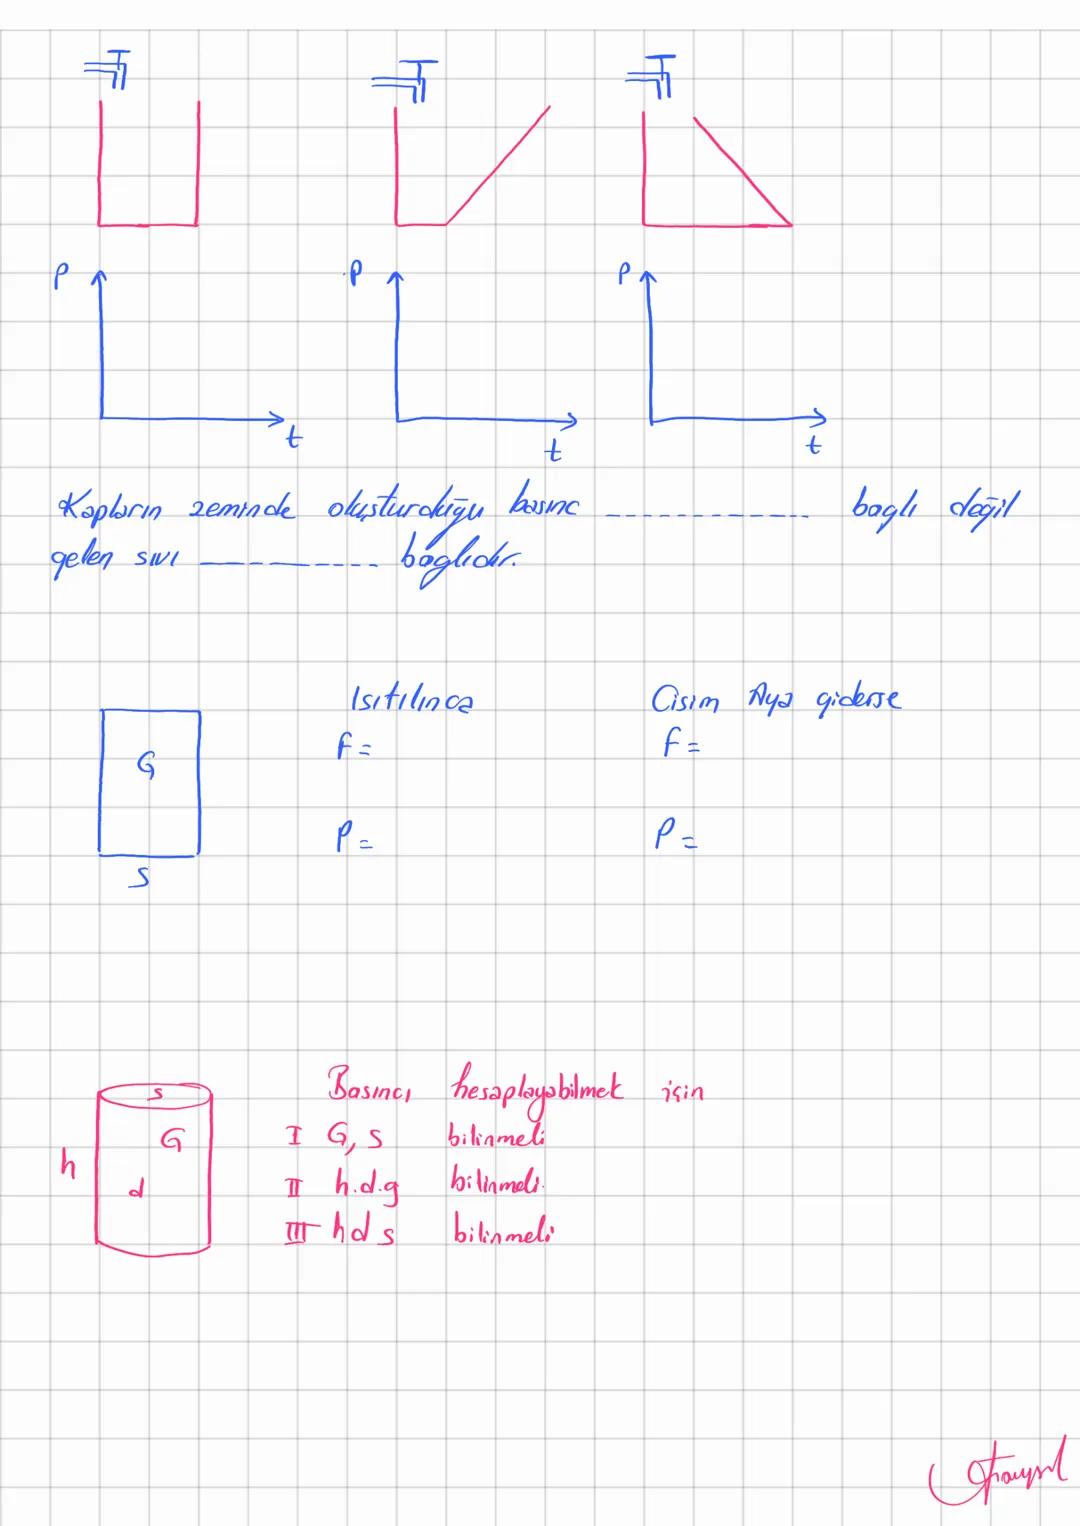 P P P
t t t
Kapların zeminde oluşturduğu basınc ------------ bağlı değil
gelen sıvı ---------- bağlıdır.
Isıtılınca Cisim Aya giderse
G F = F =
P = P =
S
S
Basıncı hesaplayabilmek için
G I G, s bilinmeli
h d II h.d.g bilinmeli.
III h d s bilinmeli